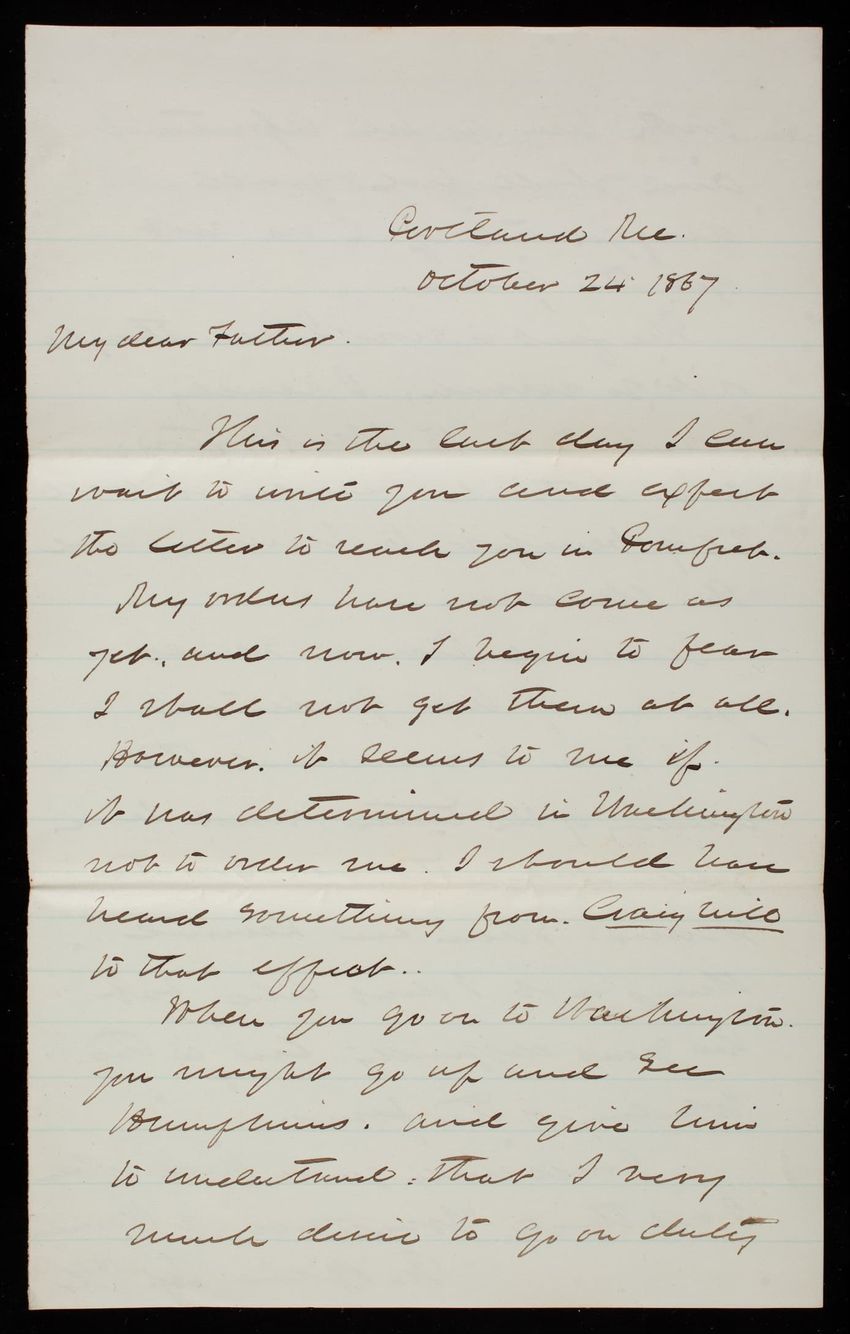 Portland Me.
October 24 1867
My dear Father.
This is the last day I can
wait to write you and expect
the letter to reach you in Pomfret.
My orders have not come as
yet., and now. I begin to fear
I shall not get them at all.
However. it seems to me if.
it was determined in Washington
not to order me. I should have
heard something from. Craighill
to that effect..
When you go on to Washington.
you might go up and see
Humphries. and give him
to understand. that I very
much desire to go on duty